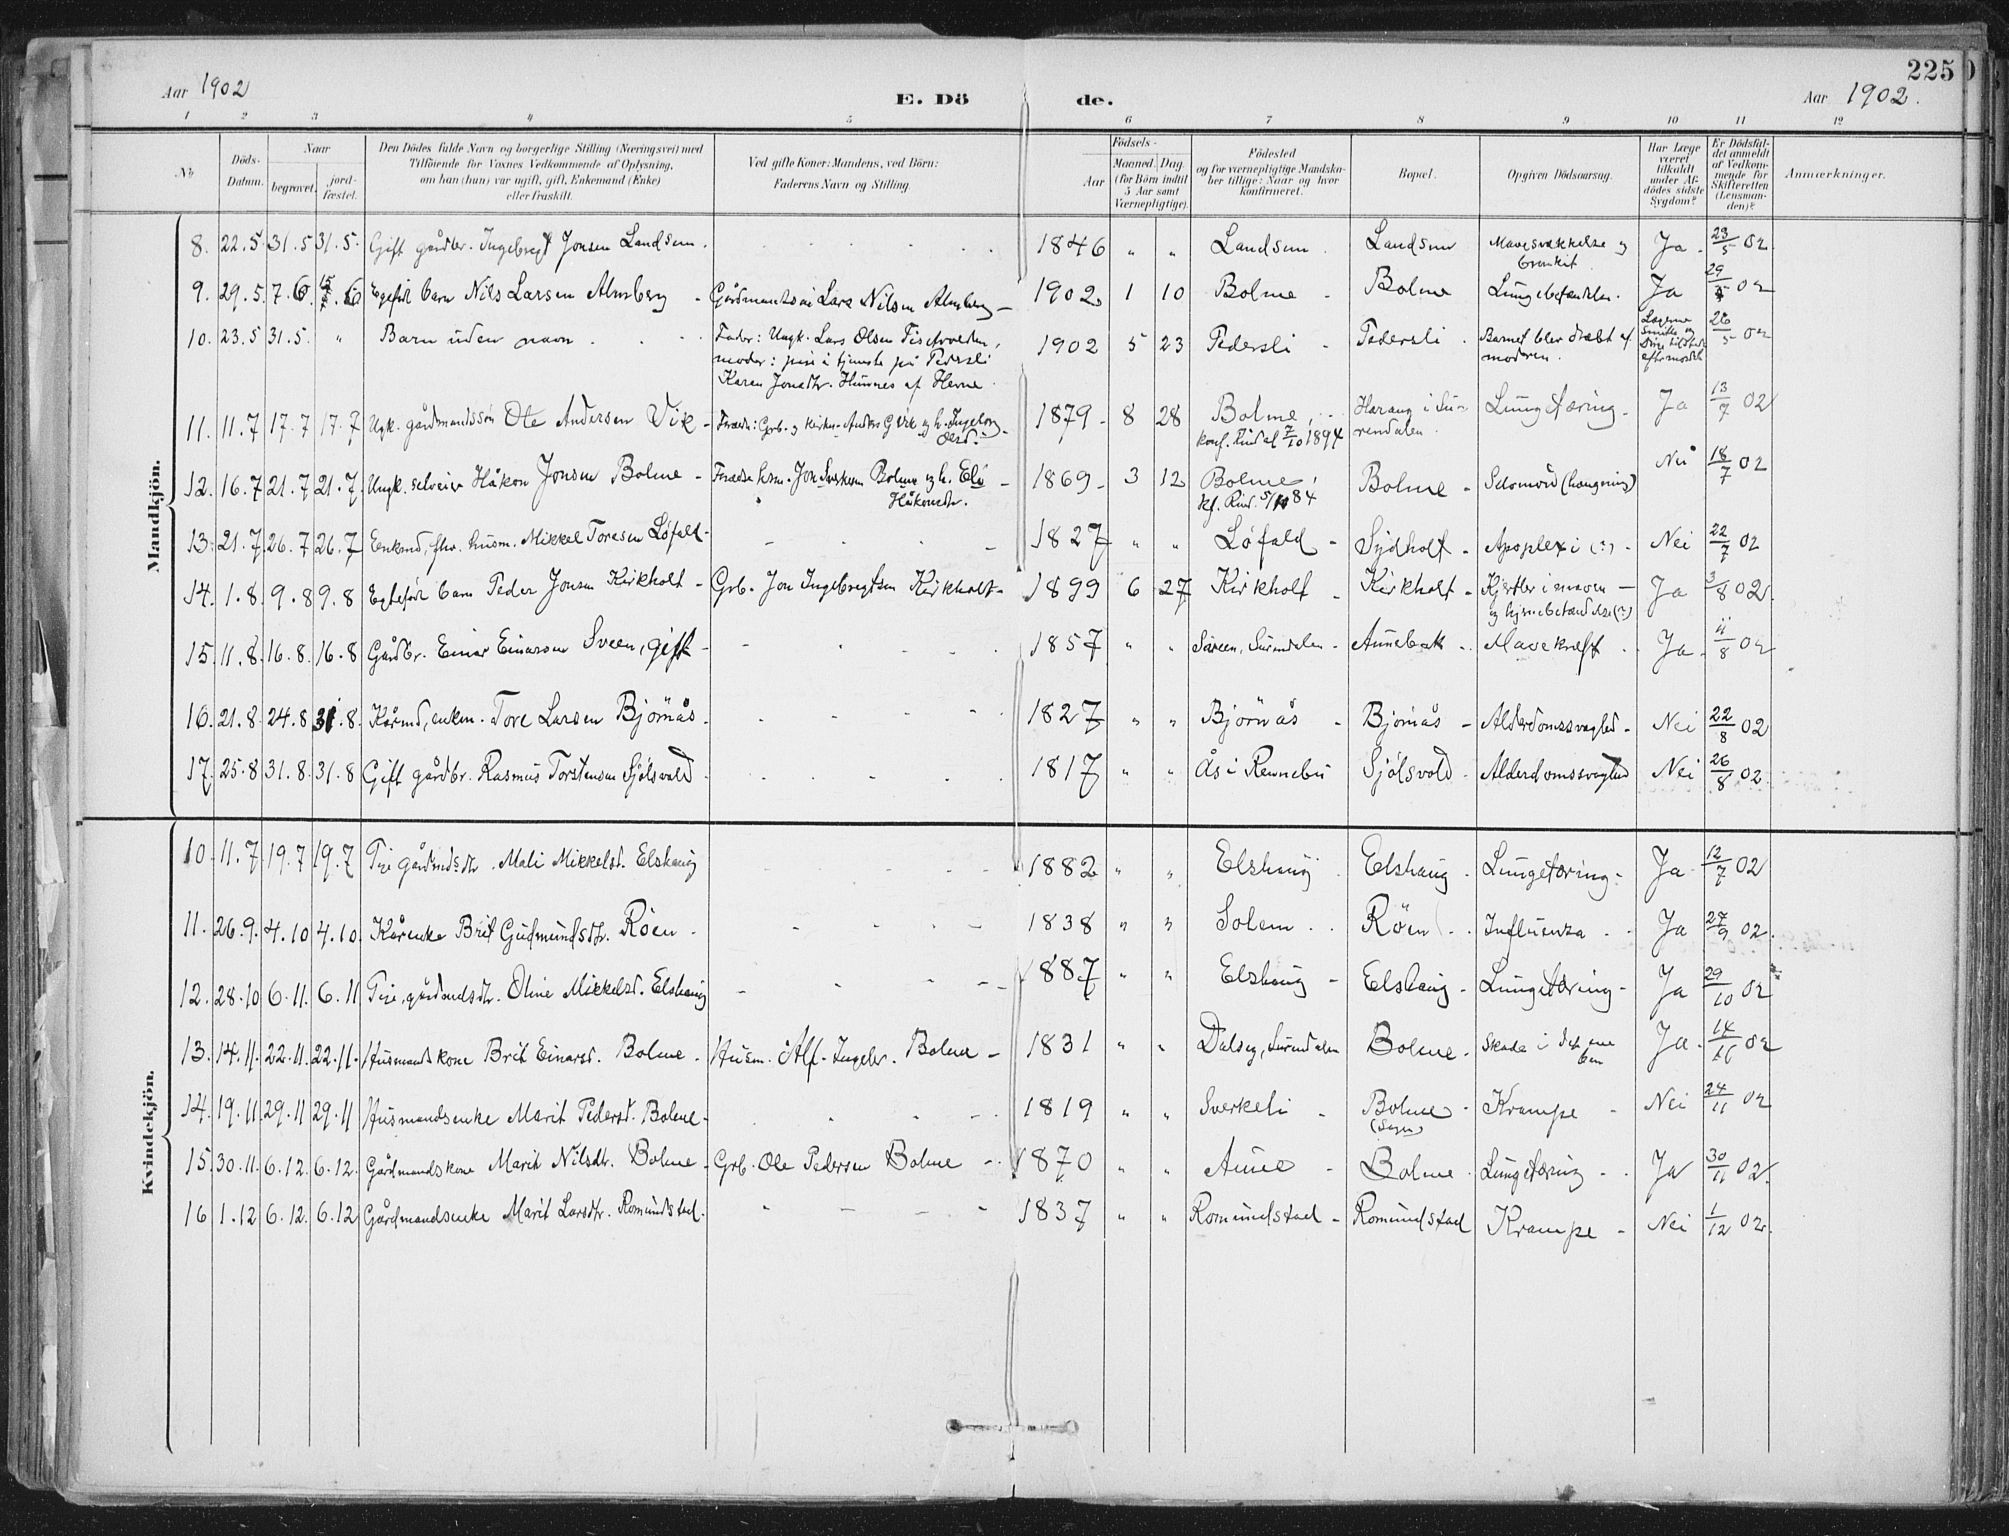 225
Aar 1902
E. Dö de.
Aar 1902.
1 2 3 4 5 6 7 8 9 10 11 12
No
Döds-Datum.
Naar
begravet.
jord-fæstet.
Den Dödes fulde Navn og borgerlige Stilling (Næringsvei) med
Tilföiende for Voxnes Vedkommende af Oplysning,
om han (hun) var ugift, gift, Enkemand (Enke)
eller fraskilt.
Ved gifte Koner: Mandens, ved Börn:
Faderens Navn og Stilling.
Födsels-
Aar
Maaned. Dag.
(for Börn indtil
5 Aar samt
Værnepligtige).
Födested
og for værnepligtige Mandskaber tillige: Naar og hvor
konfirmeret.
Bopæl.
Opgiven Dödsaarsag.
Har Læge
været
tilkaldt
under Afdödes sidste
Sygdom?
Er Dödsfaldet anmeldt
af Vedkommende for
Skifteretten
(Lensmanden)?
Anmærkninger.
Mandkjön.
8. 22.5. 31.5 31.5. Gift gårdbr. Ingebrigt Jonsen Landsem. 1846 " " Landsem Landsem Mavesvækkelse og bronkit Ja 23/5 02.
9. 29.5. 7.6. Egteført barn Nils Larsen Almberg - Gårdmandssøn Lars Nilsen Almberg - 1902 1 10 Bolme - Bolme Lungebetændelse. Ja 29/5 02
10. 23.5 31.5. " Barn uden navn. Fader: Ungk. Lars Olsen
moder: pige i tjeneste på Pedersli
Karen Jonsdtr. af Hevne. 1902 5 23 Pedersli - Pedersli Barnet blev dræbt af moderen. 26/5 02
11. 11.7 17.7 17.7 Ugk. gårdmandssøn Ole Andersen Vik - Foræld: Grb. og Anders G Vik og h. Ingeborg 1879 - 8 28 Bolme, konf. Rindal 7/10 1894 Harang i Surendalen. Lungetæring - Ja 13/7 02
12. 16.7 21.7 21.7. Ungk. selveier Håkon Jonsen Bolme - Foræld: husm. Jon Sverkesen Bolme og h. Eli Håkonsdtr. 1869 - 3 12 Bolme, kf. Rind. 84 Bolme - Selvmord (hængning) Nei 18/7 02
13. 21.7 26.7 26.7 Enkemd, fhv. husm. Mikkel Toresen Løfald - 1827 " " Løfald - Sydholt - Apoplexi (?) - Nei 22/7 02
14. 1.8. 9.8 9.8 Egteført barn Peder Jonsen Kirkholt - Grb. Jon Ingebrigtsen Kirkholt - 1899 6 27 Kirkholt - Kirkholt - Kjertler i maven - og hjernebetændelse (?) Ja 3/8 02.
15. 11.8. 16.8. 16.8 Gårdbr. Einar Einarsen Sveen, gift - 1857 " " Sveen, Surendalen - Aunebak - Mavekræft Ja 11/8 02
16. 21.8. 24.8 31.8. Kårmd, enkem. Tore Larsen Bjørnås. 1827 " " Bjørnås - Bjørnås - Alderdomssvaghed - Nei 22/8 02
17. 25.8 31.8. 31.8 Gift gårdbr. Rasmus Torstensen Sjølsvold. 1817 " " Ås i Rennebu Sjølsvold - Alderdomssvaghed Nei 26/8 02.
Kvindekjön.
10. 11.7 19.7 19.7 Pige gårdmdsdtr. Mali Mikkelsd. Elshaug 1882 " " Elshaug Elshaug - Lungetæring - Ja 12/7 02
11. 26.9. 4.10 4.10. Kårenke Brit Gudmundsdtr. Röen. 1838 " " Solem Röen Influenza Ja 27/9 02.
12. 28.10 6.11. 6.11 Pige, gårdmandsdtr. Oline Mikkelsd. Elshaug 1887 " " Elshaug - Elshaug - Lungetæring - Ja 29/10 02
13. 14.11. 22.11. 22.11. Husmandskone Brit Einarsd. Bolme. Husm. Alf. Ingebr. Bolme - 1831 " " Dalseg, Surendalen Bolme - Skade i det ene ben Ja - 14/11 02
14. 19.11. 29.11 29.11 Husmandsenke Marit Pedersd. Bolme - 1819 " " Sverkeli - Bolme Krampe Nei 24/11 02
15. 30.11. 6.12. 6.12. Gårdmandskone Marit Nilsdtr. Bolme - Grb. Ole Pedersen Bolme - 1870 " " Aune - Bolme - Lungetæring - Ja 30/11 02.
16 1.12 6.12. 6.12 Gårdmandsenke Marit Larsdtr. Romundstad. 1837 " " Romundstad - Romundstad Krampe - Nei 1/12 02.